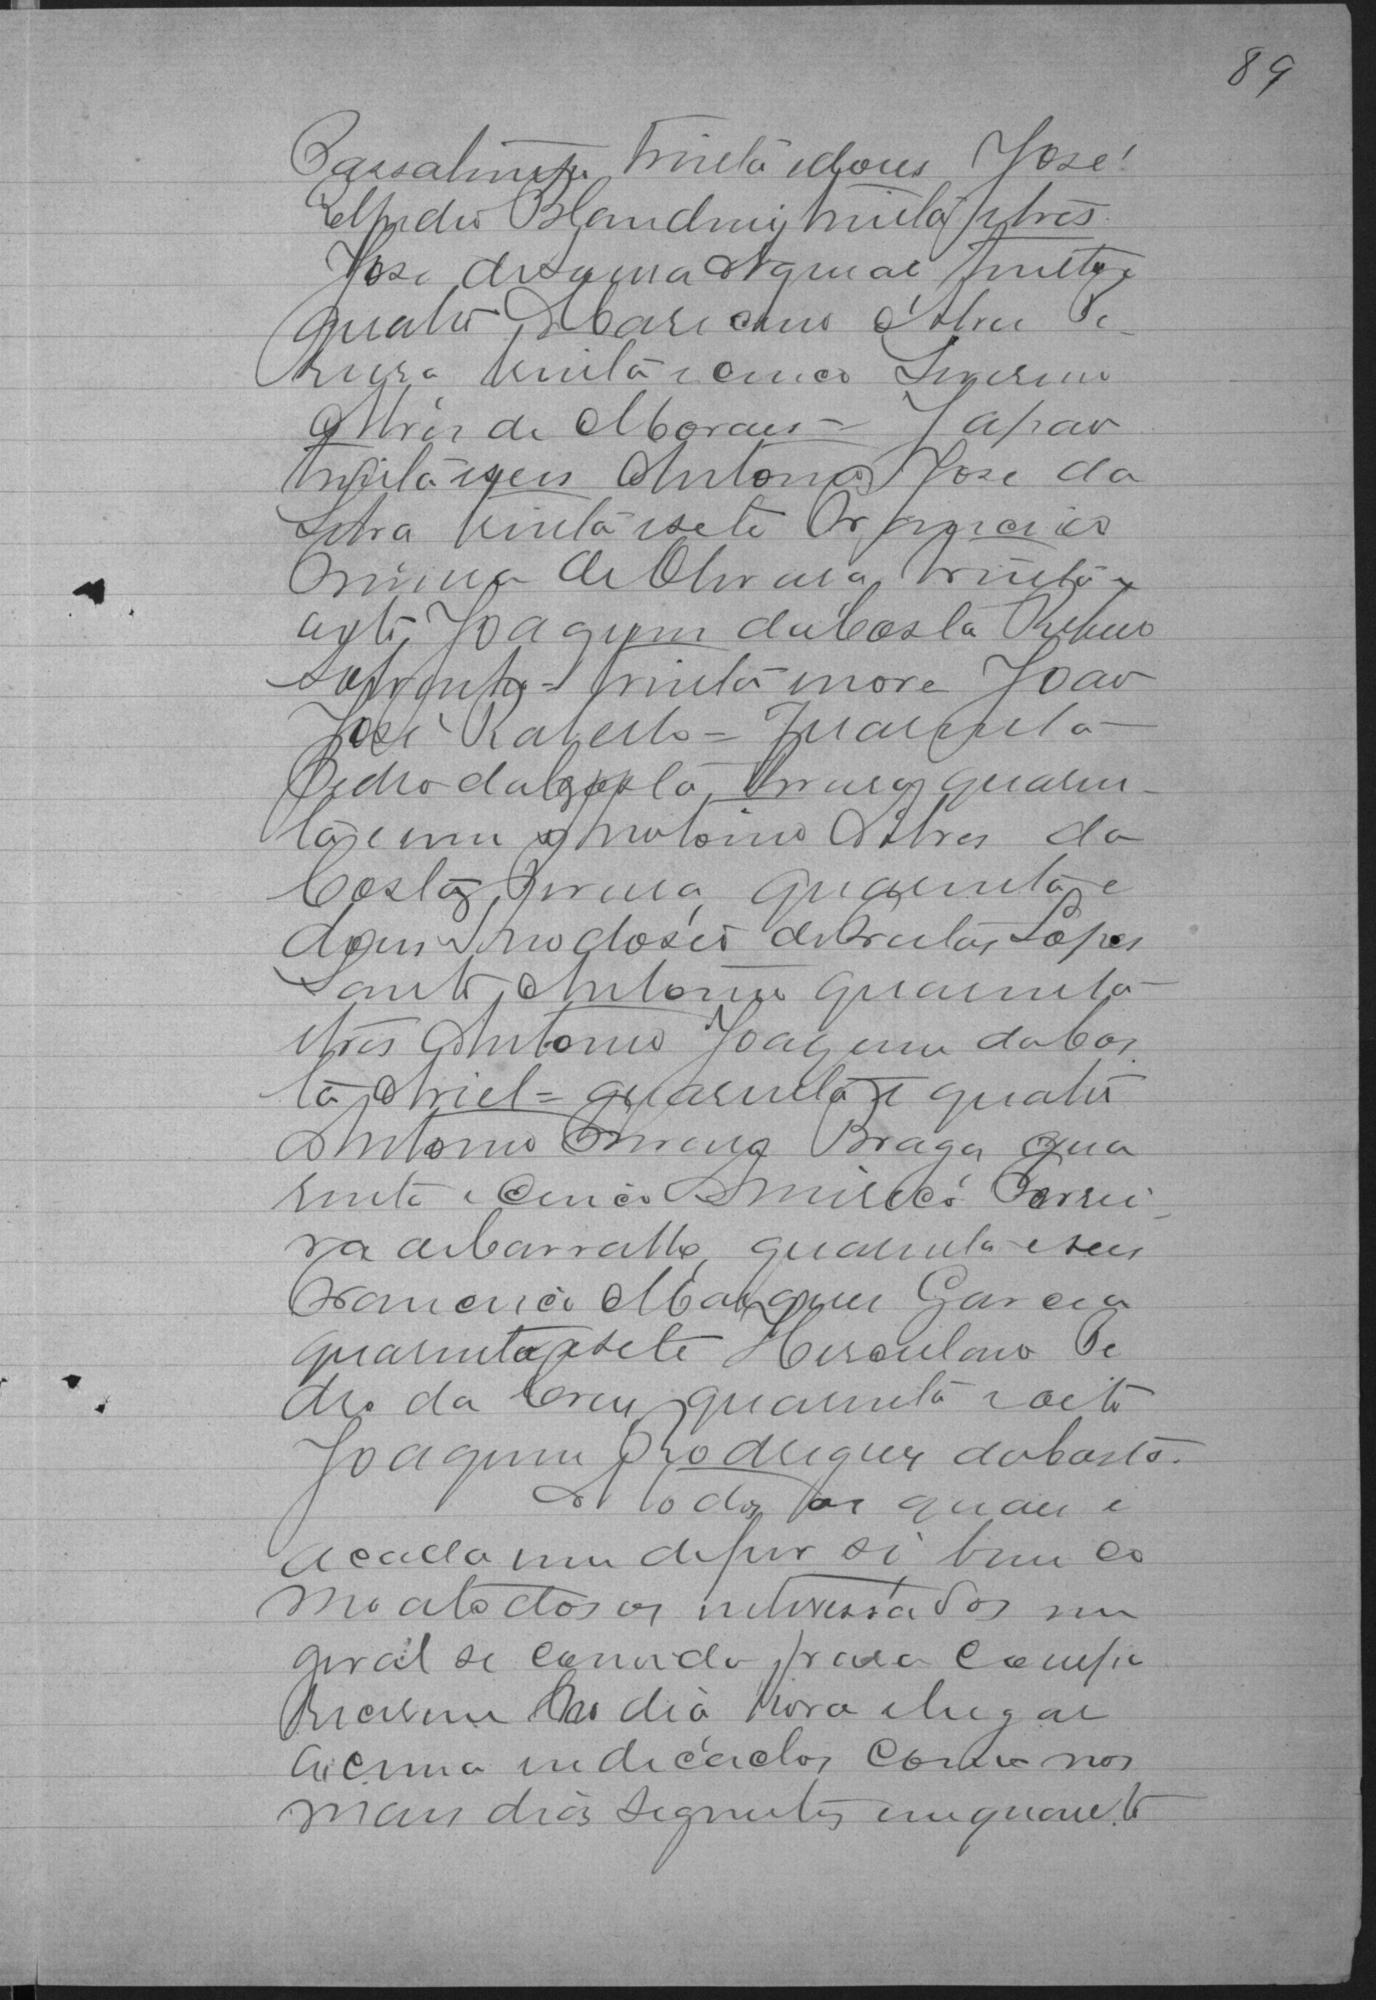 89
trinta e dous José
Alfredo Blandiny trinta e tres
José de Aguiar trinta e
quatro Mariano Alves Pe-
reira trinta e cinco Severino
Alves de Moraes = Japão
trinta e seis Antonio José da
Silva trinta e sete
de Oliveira trinta e
oito, Joaquim da Costa
= trinta e nove João
José Raberto = Quarenta
Pedro da Costa quaren-
ta e um Antonio Alves da
Costa quarenta e
dous de Freitas Lopes
Santo Antonio quarenta
e tres Antonio Joaquim da Cos
ta = quarenta e quatro
Antonio Braga qua
renta e cinco Americo Ferrei-
ra de Carvalho, quarenta e seis
Francisco Marques Garcia
quarenta e sete Herculano Pe
dro da Cruz, quarenta e oito
Joaquim Rodrigues da Costa.
A todos os quaes e
a cada um de per si, bem co
mo a todos os interessados em
geral se convida para compa
recerem no dia hora e lugar
acima indicados como nos
mais dias seguintes emquanto